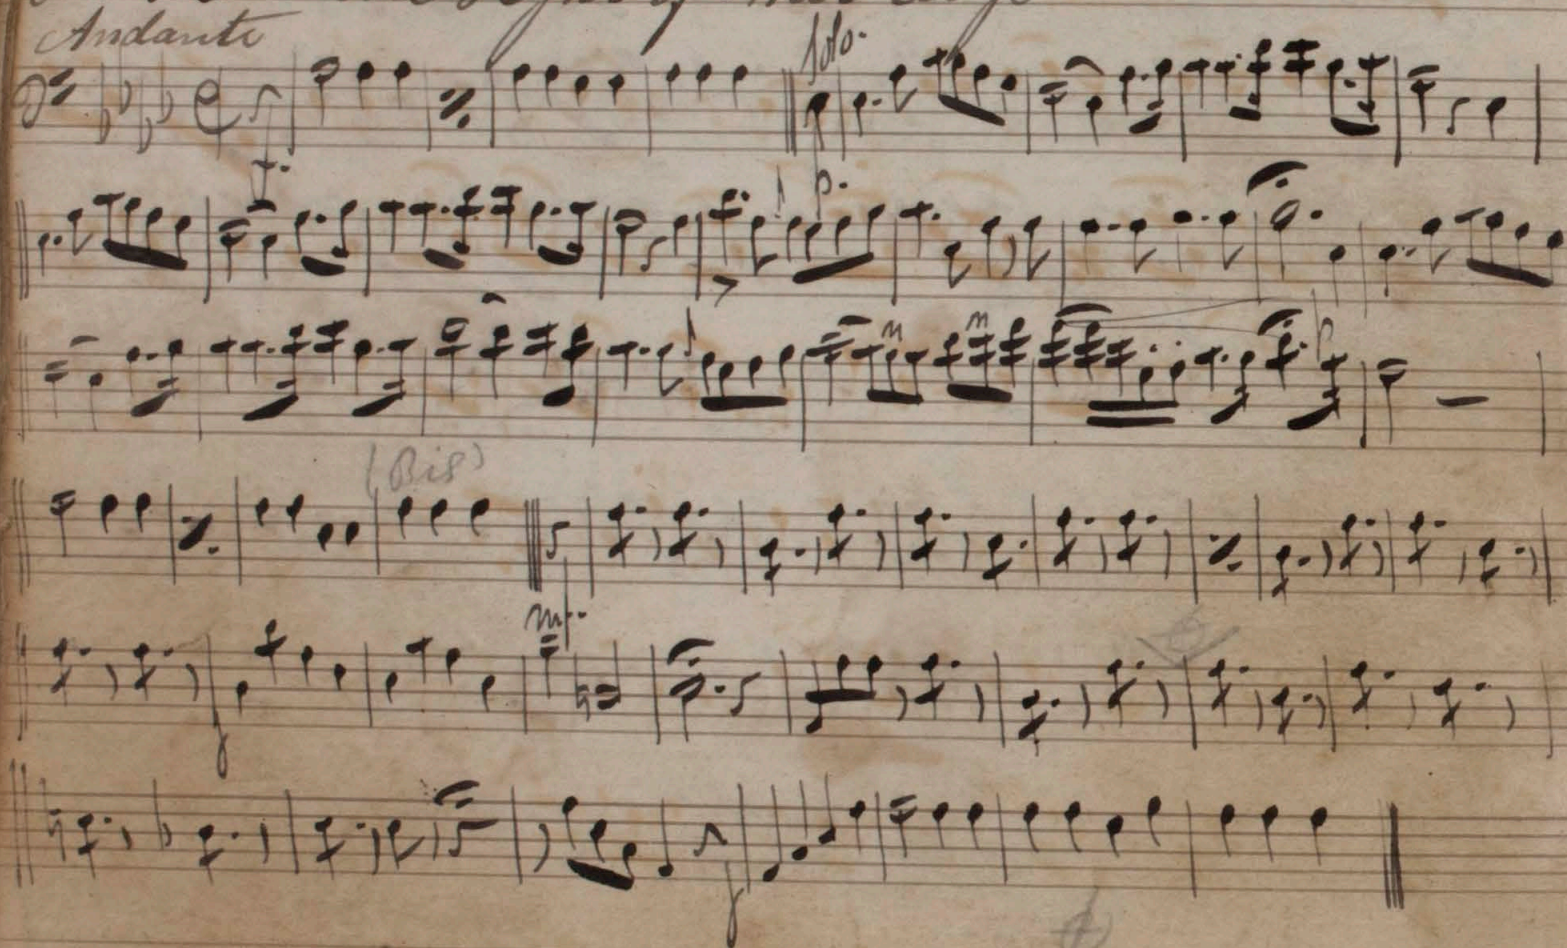 Andante
Solo.
f.
p.
(Bis)
mf.
f
f